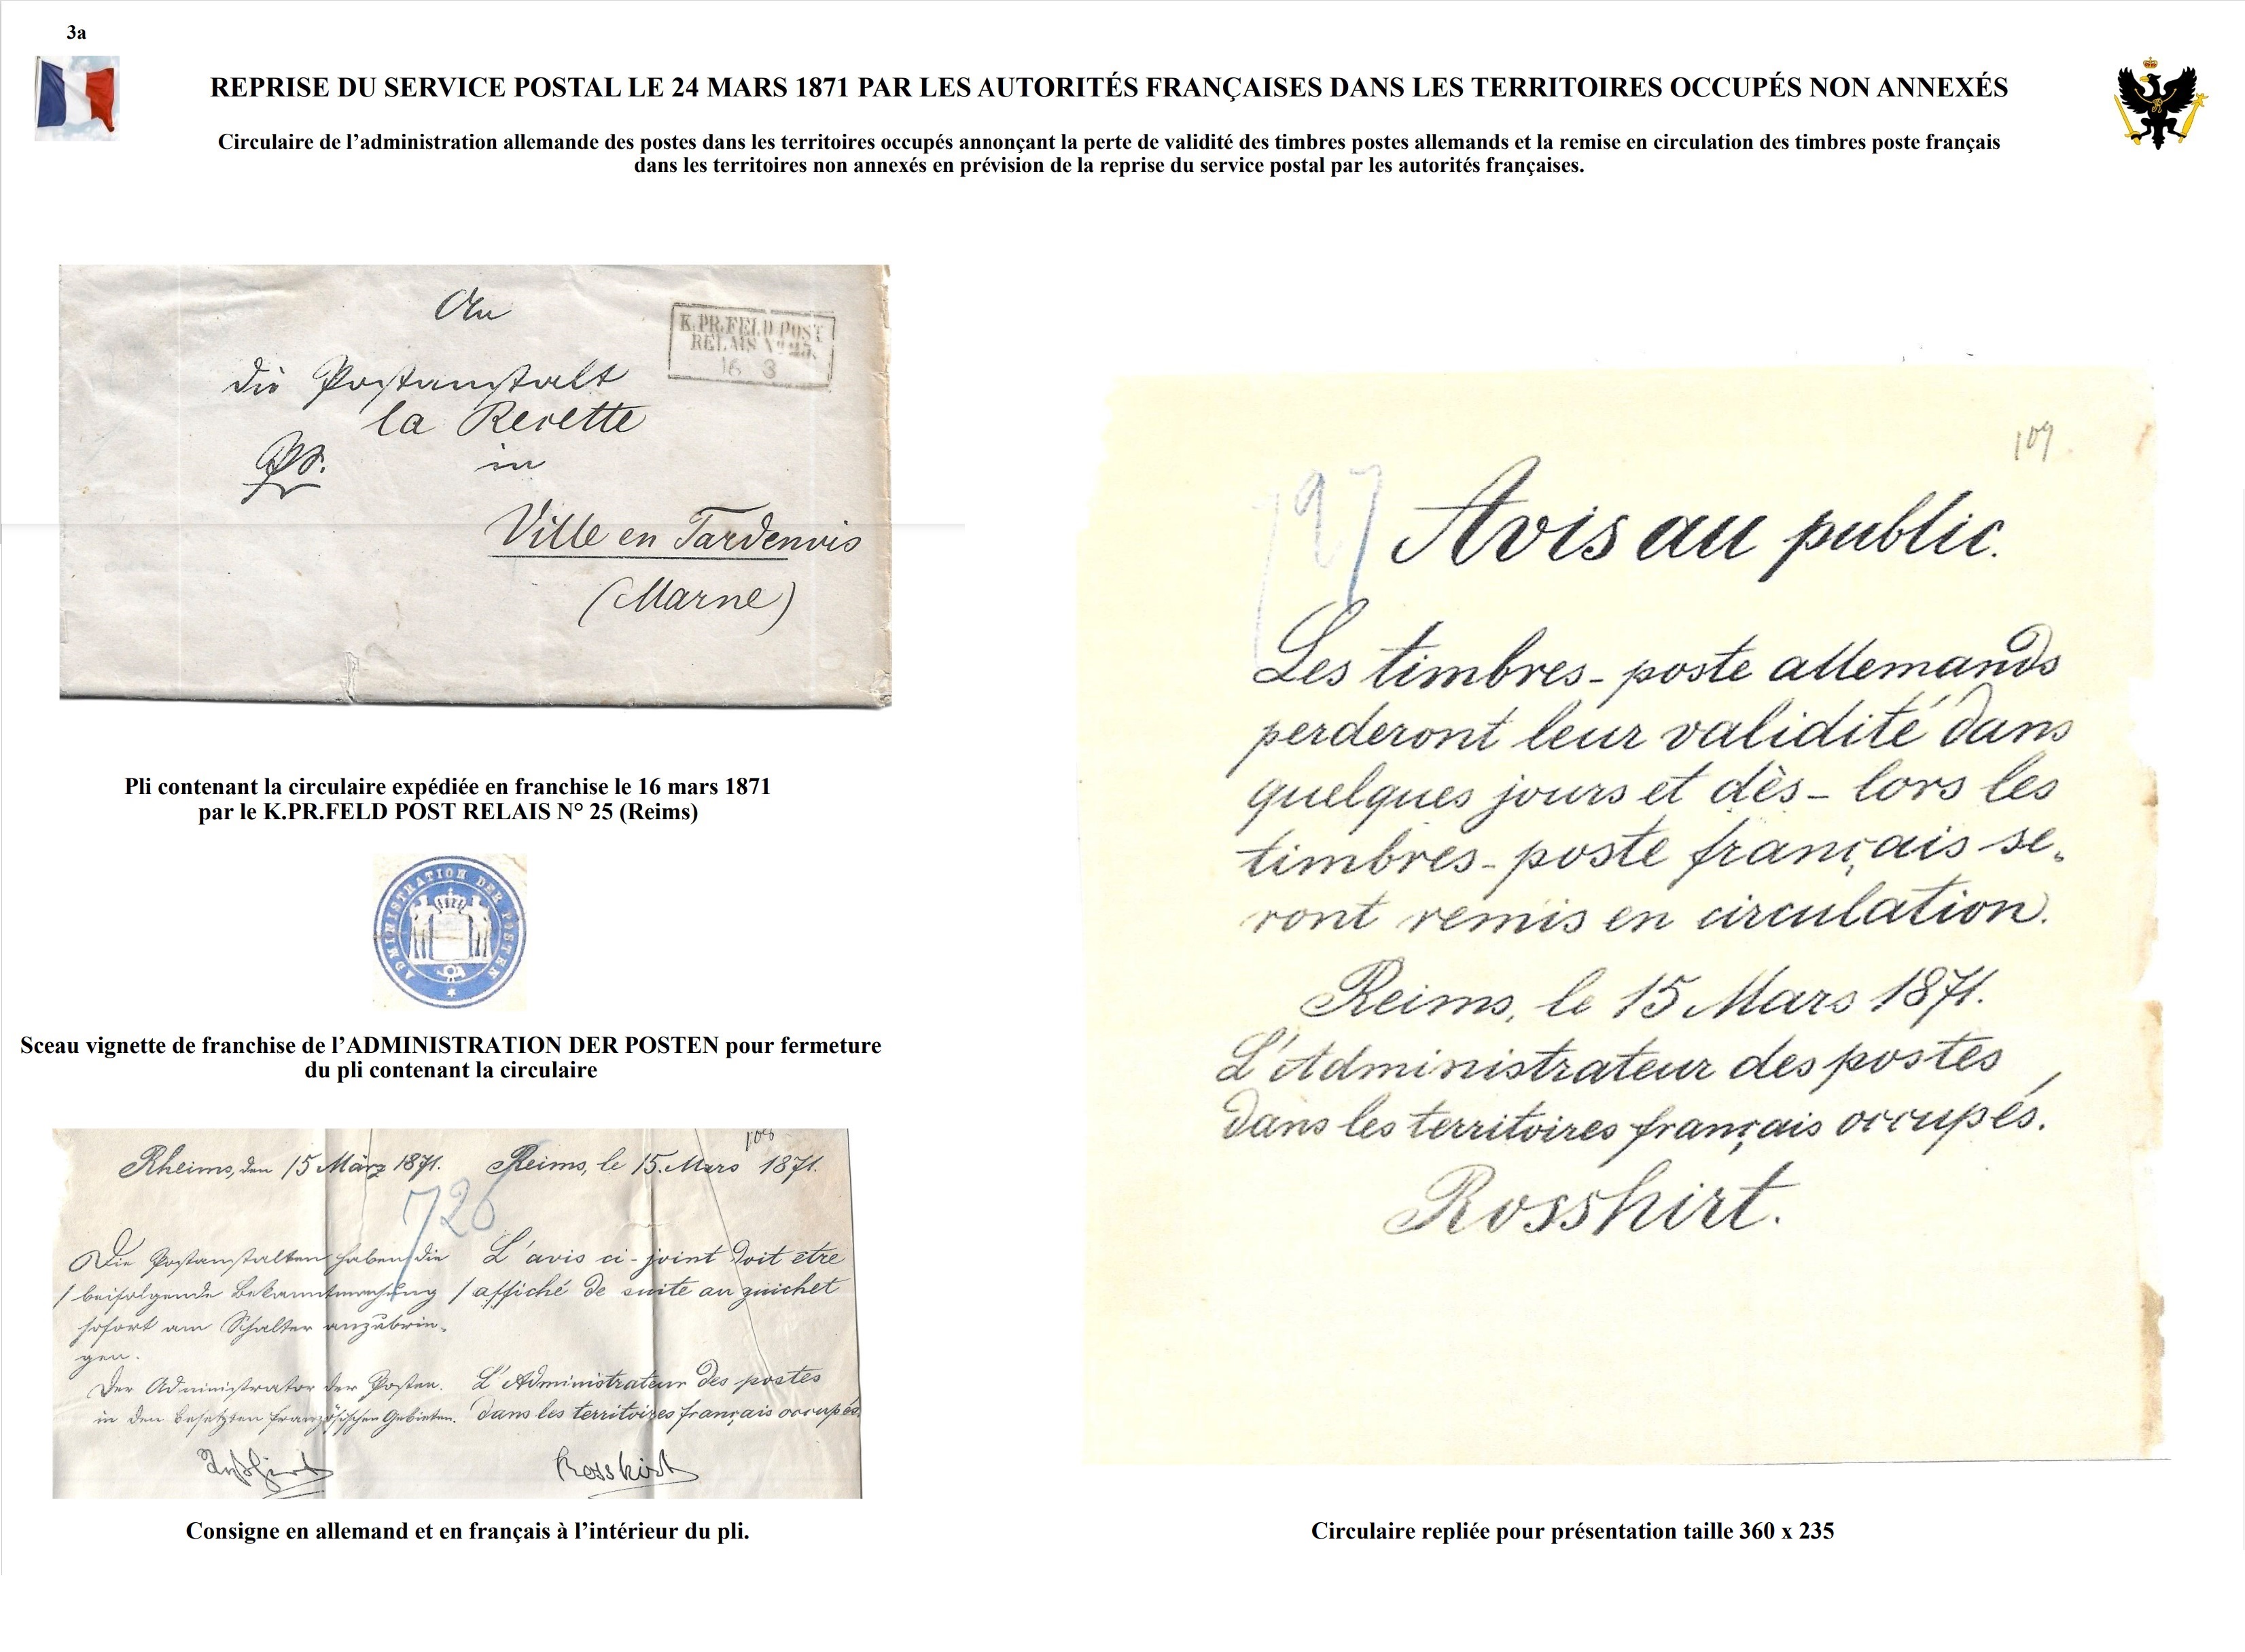 3a
REPRISE DU SERVICE POSTAL LE 24 MARS 1871 PAR LES AUTORITÉS FRANÇAISES DANS LES TERRITOIRES OCCUPÉS NON ANNEXÉS
Circulaire de l’administration allemande des postes dans les territoires occupés annonçant la perte de validité des timbres postes allemands et la remise en circulation des timbres poste français
dans les territoires non annexés en prévision de la reprise du service postal par les autorités françaises.
An
K.PR.FELD POST
RELAIS No 25.
16 3
die Postanstalt
la Recette
in
Ville en Tardenois
(Marne)
Pli contenant la circulaire expédiée en franchise le 16 mars 1871
par le K.PR.FELD POST RELAIS N° 25 (Reims)
ADMINISTRATION DER POSTEN
Sceau vignette de franchise de l’ADMINISTRATION DER POSTEN pour fermeture
du pli contenant la circulaire
108
Rheims, den 15 März 1871.
726
Die Postanstalten haben die
beifolgende Bekanntmachung
sofort am Schalter anzubrin-
gen.
Der Administrator der Posten.
in den besetzten französischen Gebieten.
Rosshirt
Reims, le 15. Mars 1871.
L'avis ci-joint doit etre
affiché de suite au guichet
L'Administrateur des postes
dans les territoires français occupés.
Rosshirt
Consigne en allemand et en français à l’intérieur du pli.
109
727
Avis au public.
Les timbres-poste allemands
perderont leur validité dans
quelques jours et dès-lors les
timbres-poste français se-
ront remis en circulation.
Reims, le 15 Mars 1871.
L'Administrateur des postes
dans les territoires français occupés.
Rosshirt.
Circulaire repliée pour présentation taille 360 x 235